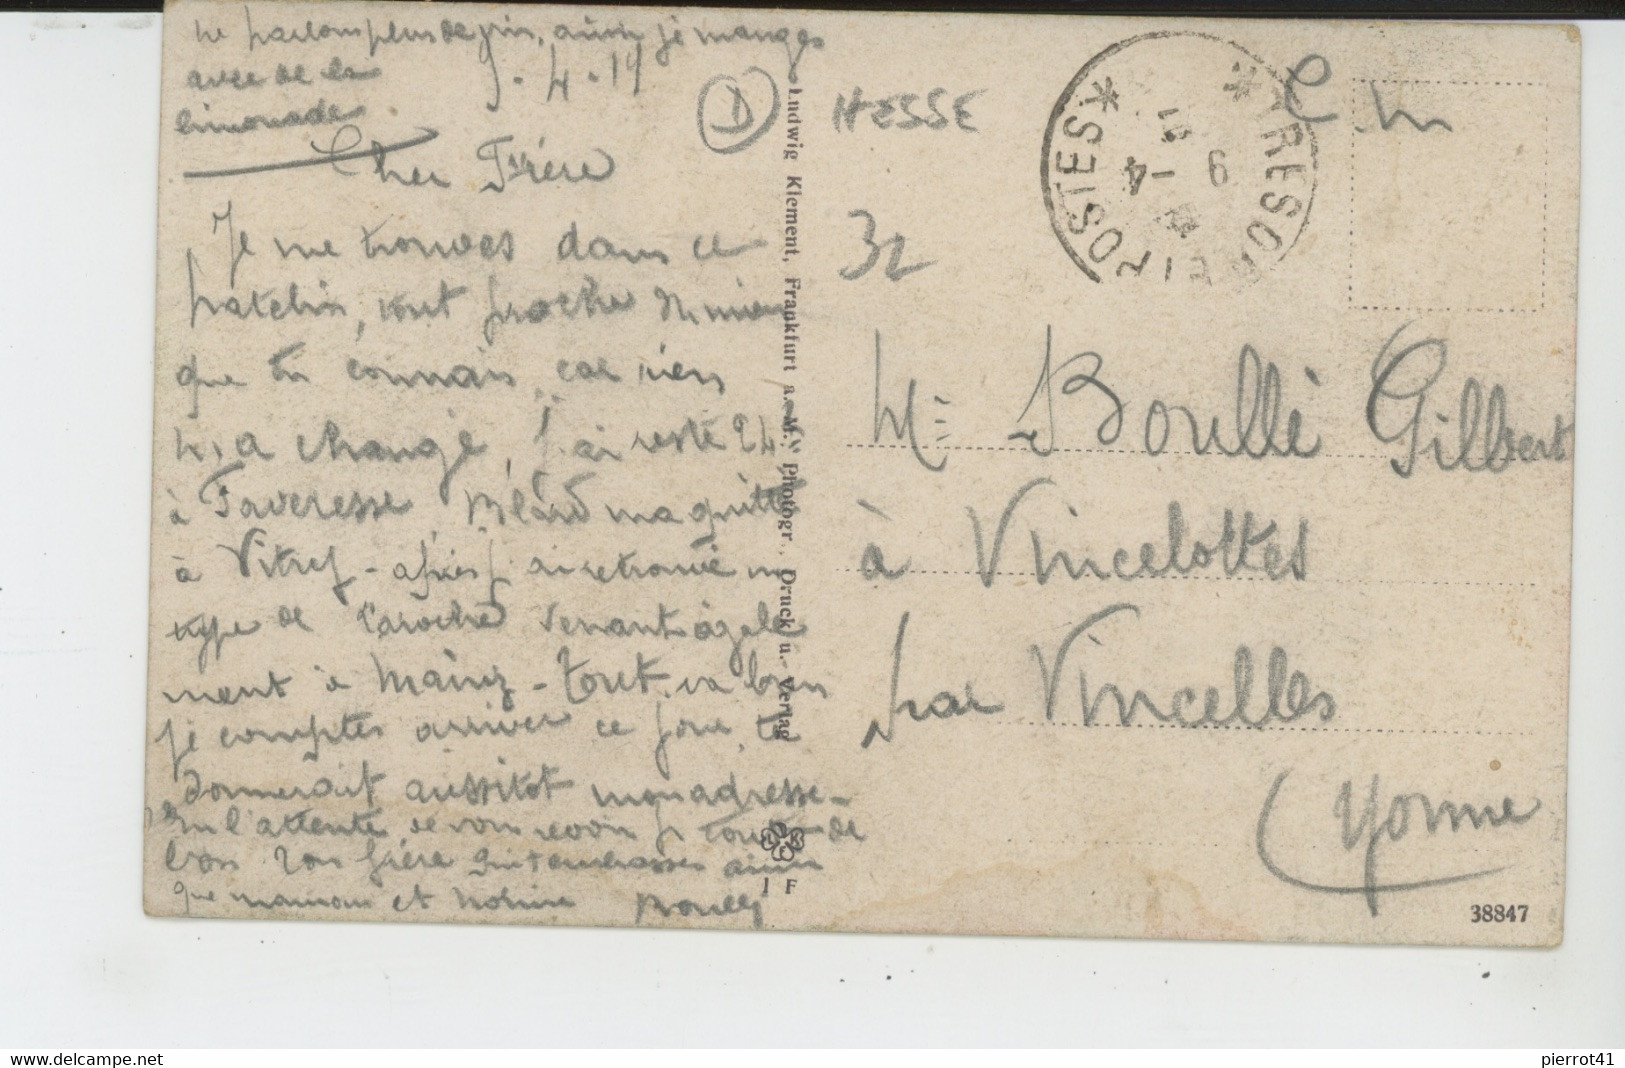 ne parlons plus de vin, aussi je manges
avec de la
limonade
9 - 4 - 19
Cher Frère
Je me trouves dans ce
patelin, tout proche
que tu connais, car rien
n'a changé, J'ai resté 24
à Faveresse, ma quitté
à Vitry - après ai retrouvé un
type de Laroche venant égale
ment à Mainz - tout va bien
je comptes arriver ce jour, te
donnerait aussitot mon adresse -
En l'attente de vous revoir je
bon ton frère qui t'embrasses ainsi
que maman et
D
HESSE
32
TRESOR ET POSTES
9 - 4
19
Mr Boullé Gilbert
à Vincelottes
par Vincelles
(Yonne
Ludwig Klement, Frankfurt a. M. Photogr., Druck u. Verlag
1 F
38847
www.delcampe.net
pierrot41